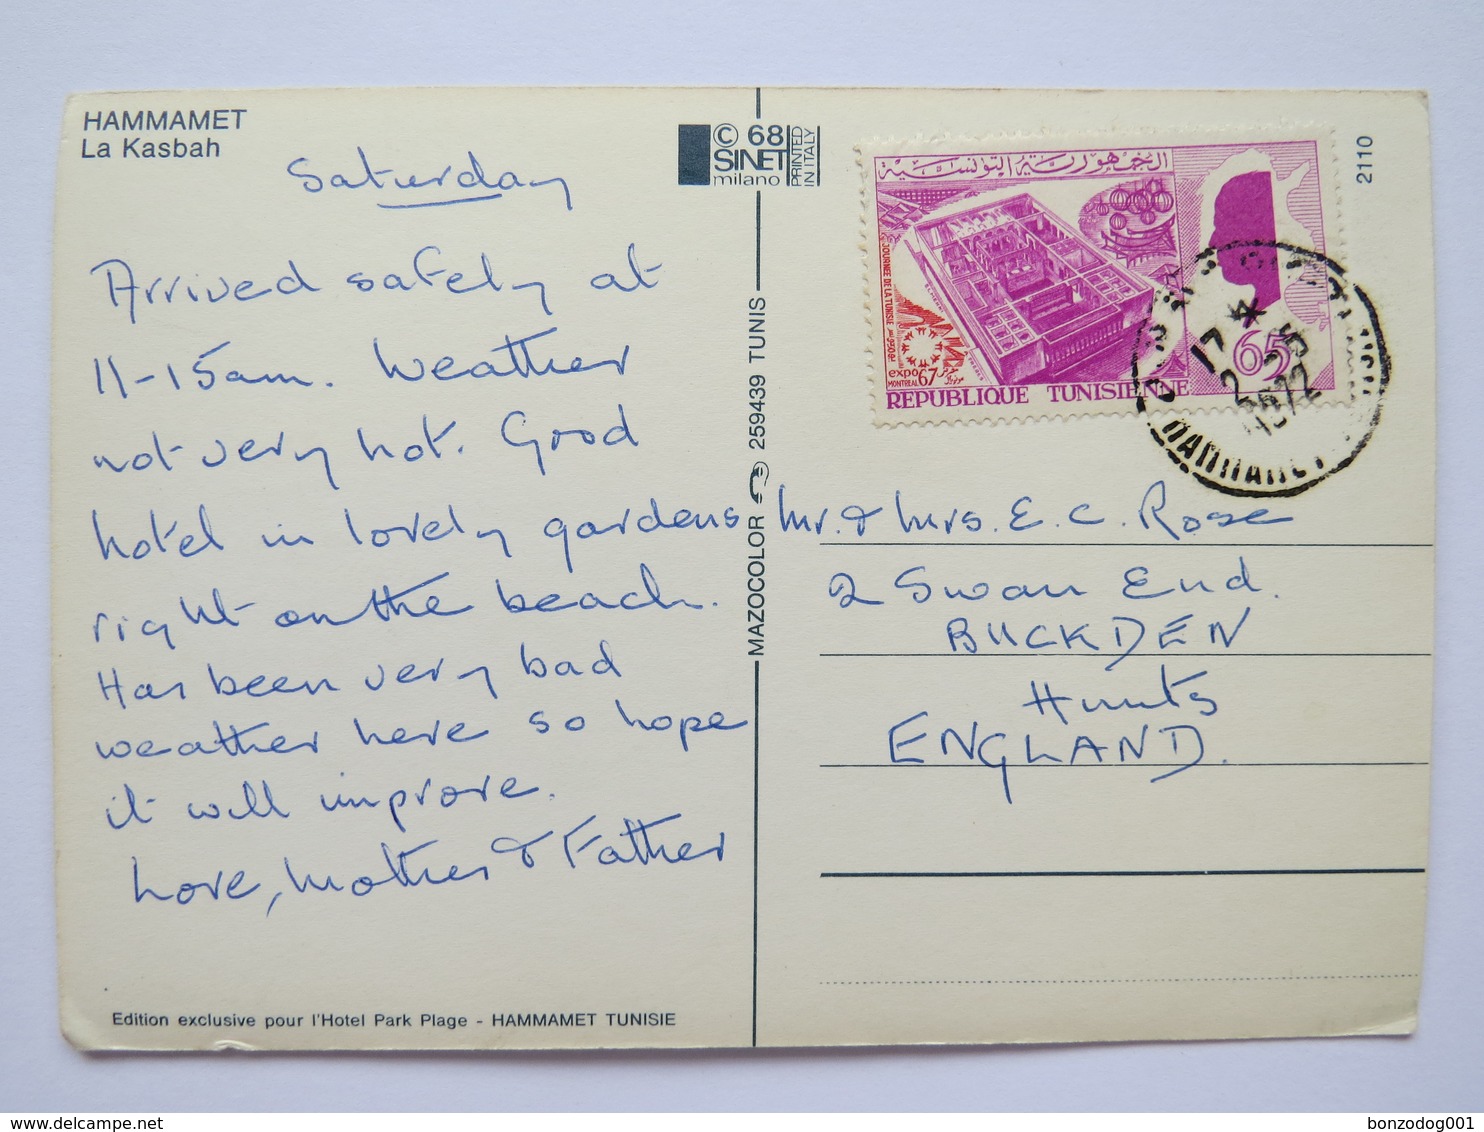 HAMMAMET
La Kasbah
Saturday
Arrived safely at
11-15am. Weather
not very hot. Good
hotel in lovely gardens
right on the beach.
Has been very bad
weather here so hope
it will improve.
Love, Mother & Father
Edition exclusive pour l'Hotel Park Plage - HAMMAMET TUNISIE
© 68
SINET
milano
PRINTED
IN ITALY
MAZOCOLOR 259439 TUNIS
2110
الجمهورية التونسية
JOURNEE DE LA TUNISIE
expo 67
MONTREAL
65
REPUBLIQUE TUNISIENNE
17
2-5
1972
HAMMAMET
Mr. & Mrs. E. C. Rose
2 Swan End.
BUCKDEN
Hunts
ENGLAND.
bonzodog001